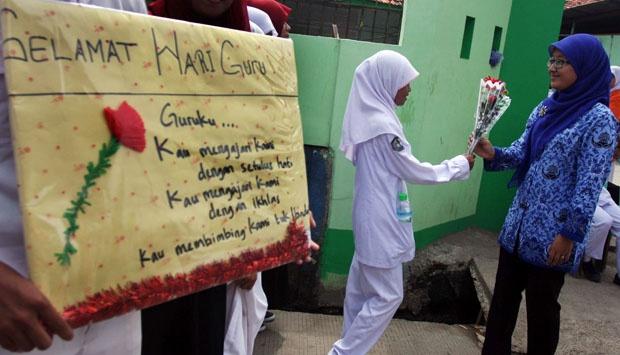 SELAMAT HARI GURU
Guruku ....
Kau mengajari Kami
dengan setulus hati
Kau mengajari Kami
dengan Ikhlas
Kau membimbing Kami tak